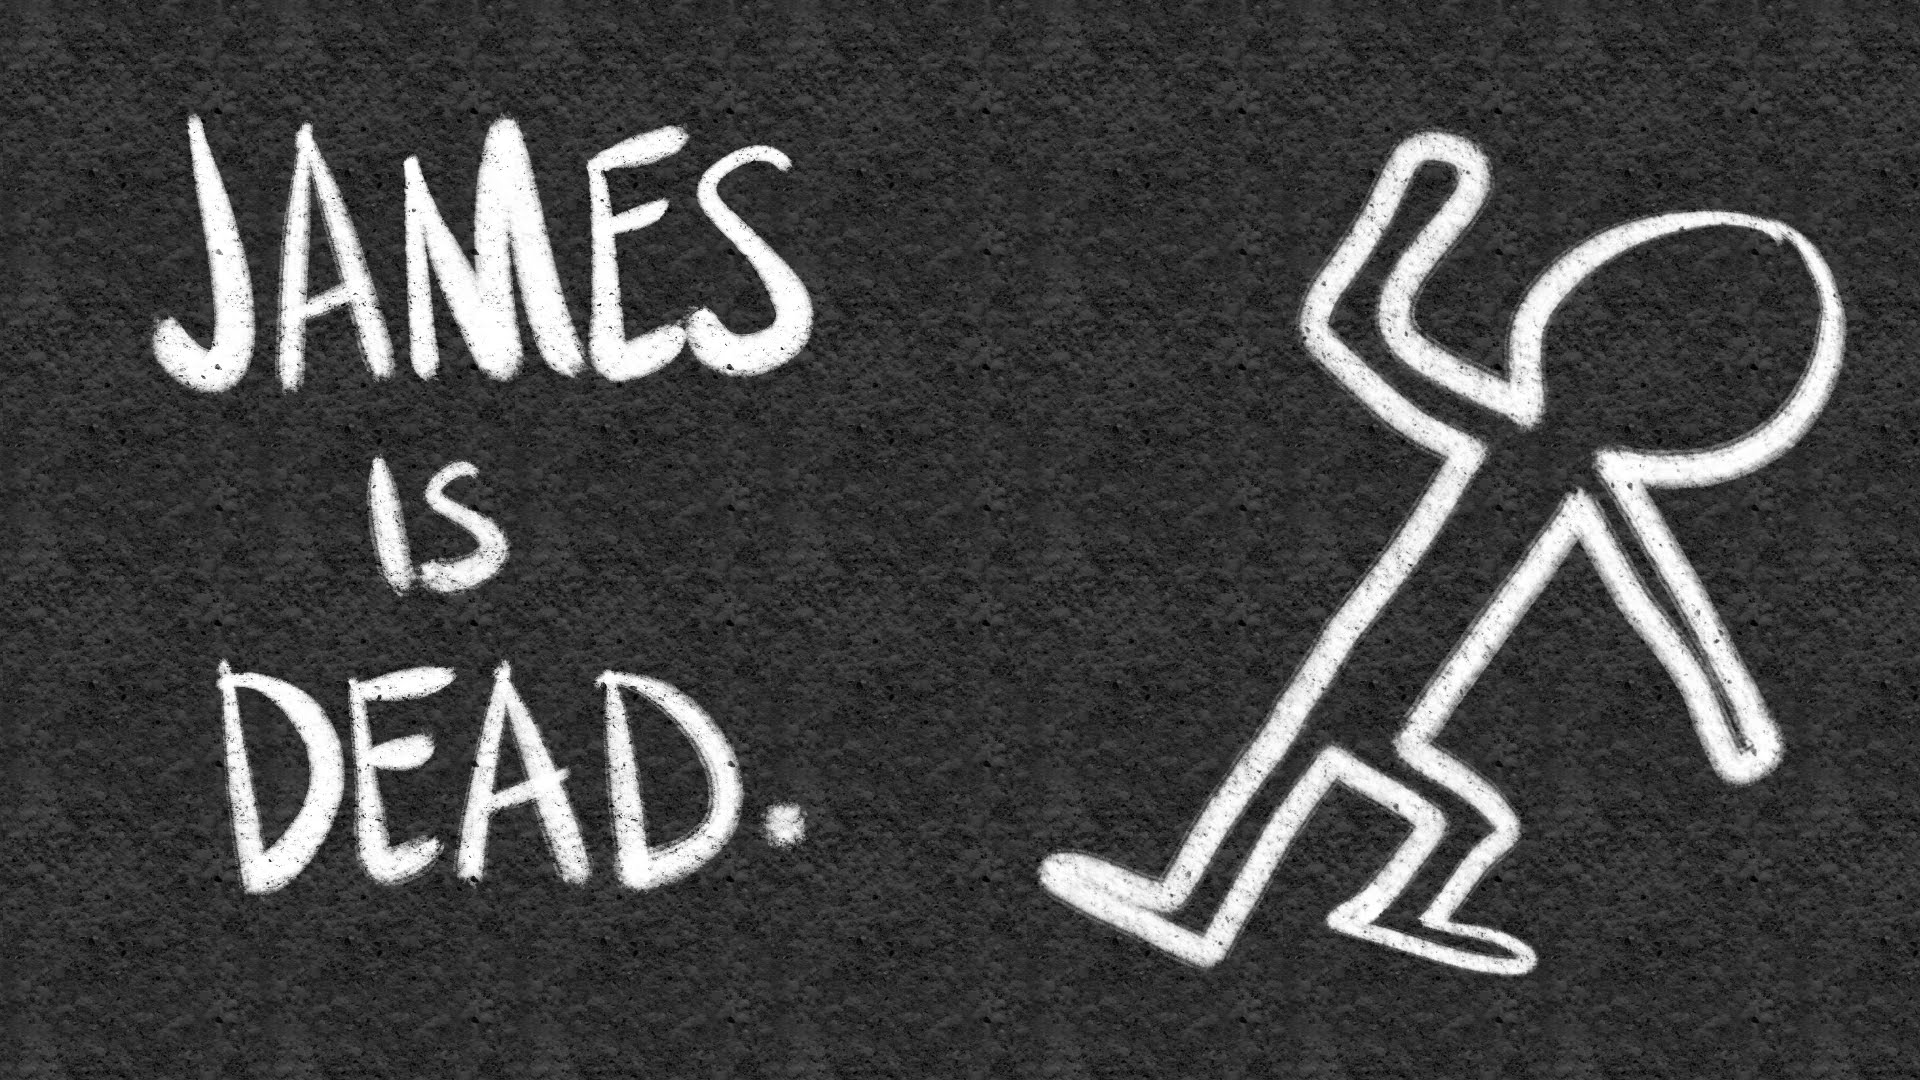 JAMES
IS
DEAD.